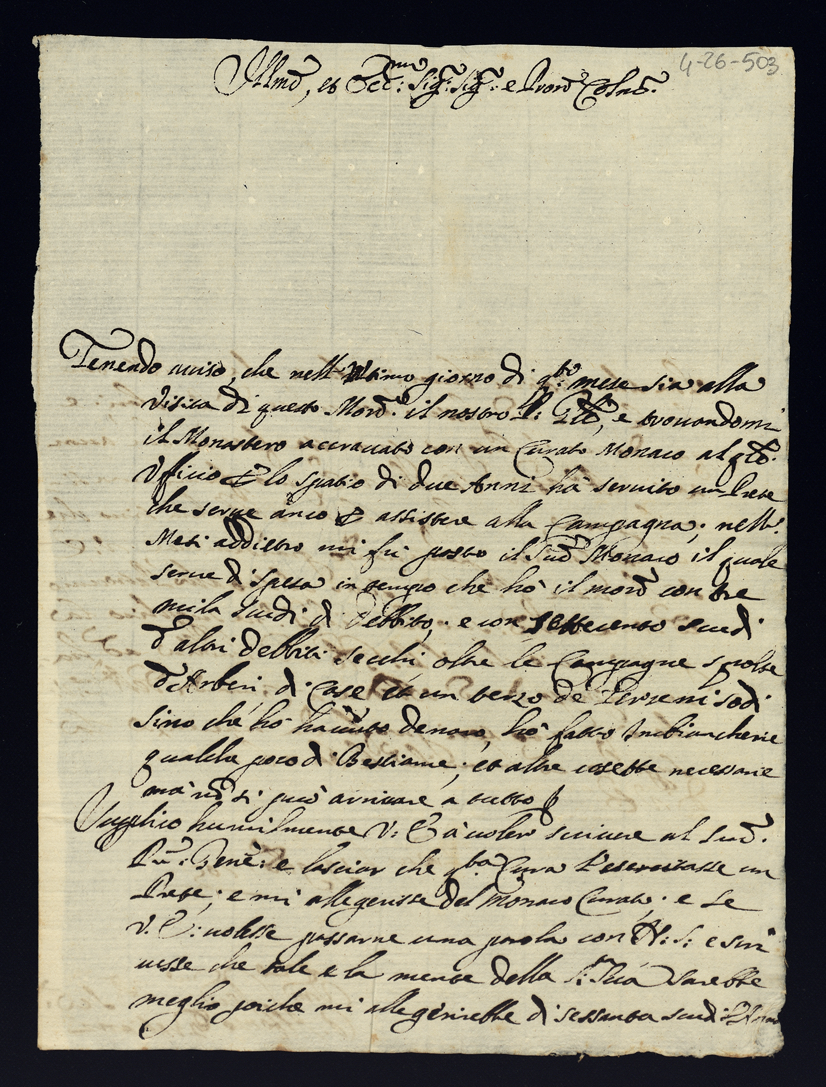 4-26-503
Illmo, et Ecc:mo Sig: Sig: e Pron Colmo.
Tenendo auiso, che nell'ultimo giorno di q:to mese sia alla
Visita di questo Mon:ro il nostro P: Gñle, e trouandomi
il Monastero aggrauato con un Curato Monaco al q:le
Ufficio p lo spatio di due Anni hà seruito un Prete
che serue anco p assistere alla Campagna; nelli
Mesi addietro mi fù posto il Sud:o Monaco il quale
serue di spesa in tempo che hò il mon:ro con tre
mila scudi di Debbito, e con Settecento scudi
d'altri debbiti secchi oltre le Campagne spolte
d'Arbori, di Case et un terzo de Terreni sodi
sino che hò hauuto denaro, hò fatto Imbiancherie
qualche poco di Bestiame, et altre cosette necessarie
mà nõ si può arriuare a tutto p
Supplico humilmente V: E à uoler scriuere al Sud:o
P:re Gene: e lasciar che q:ta Cura l'esercitasse un
Prete, e mi allegerisse del Monaco Curato; e se
V: E: uolesse passarne una parola con N: S: e scri
uesse che tale e la mente della S:tà Sua sarebbe
meglio poiche mi allegerirebbe di sessanta scudi l'Anno